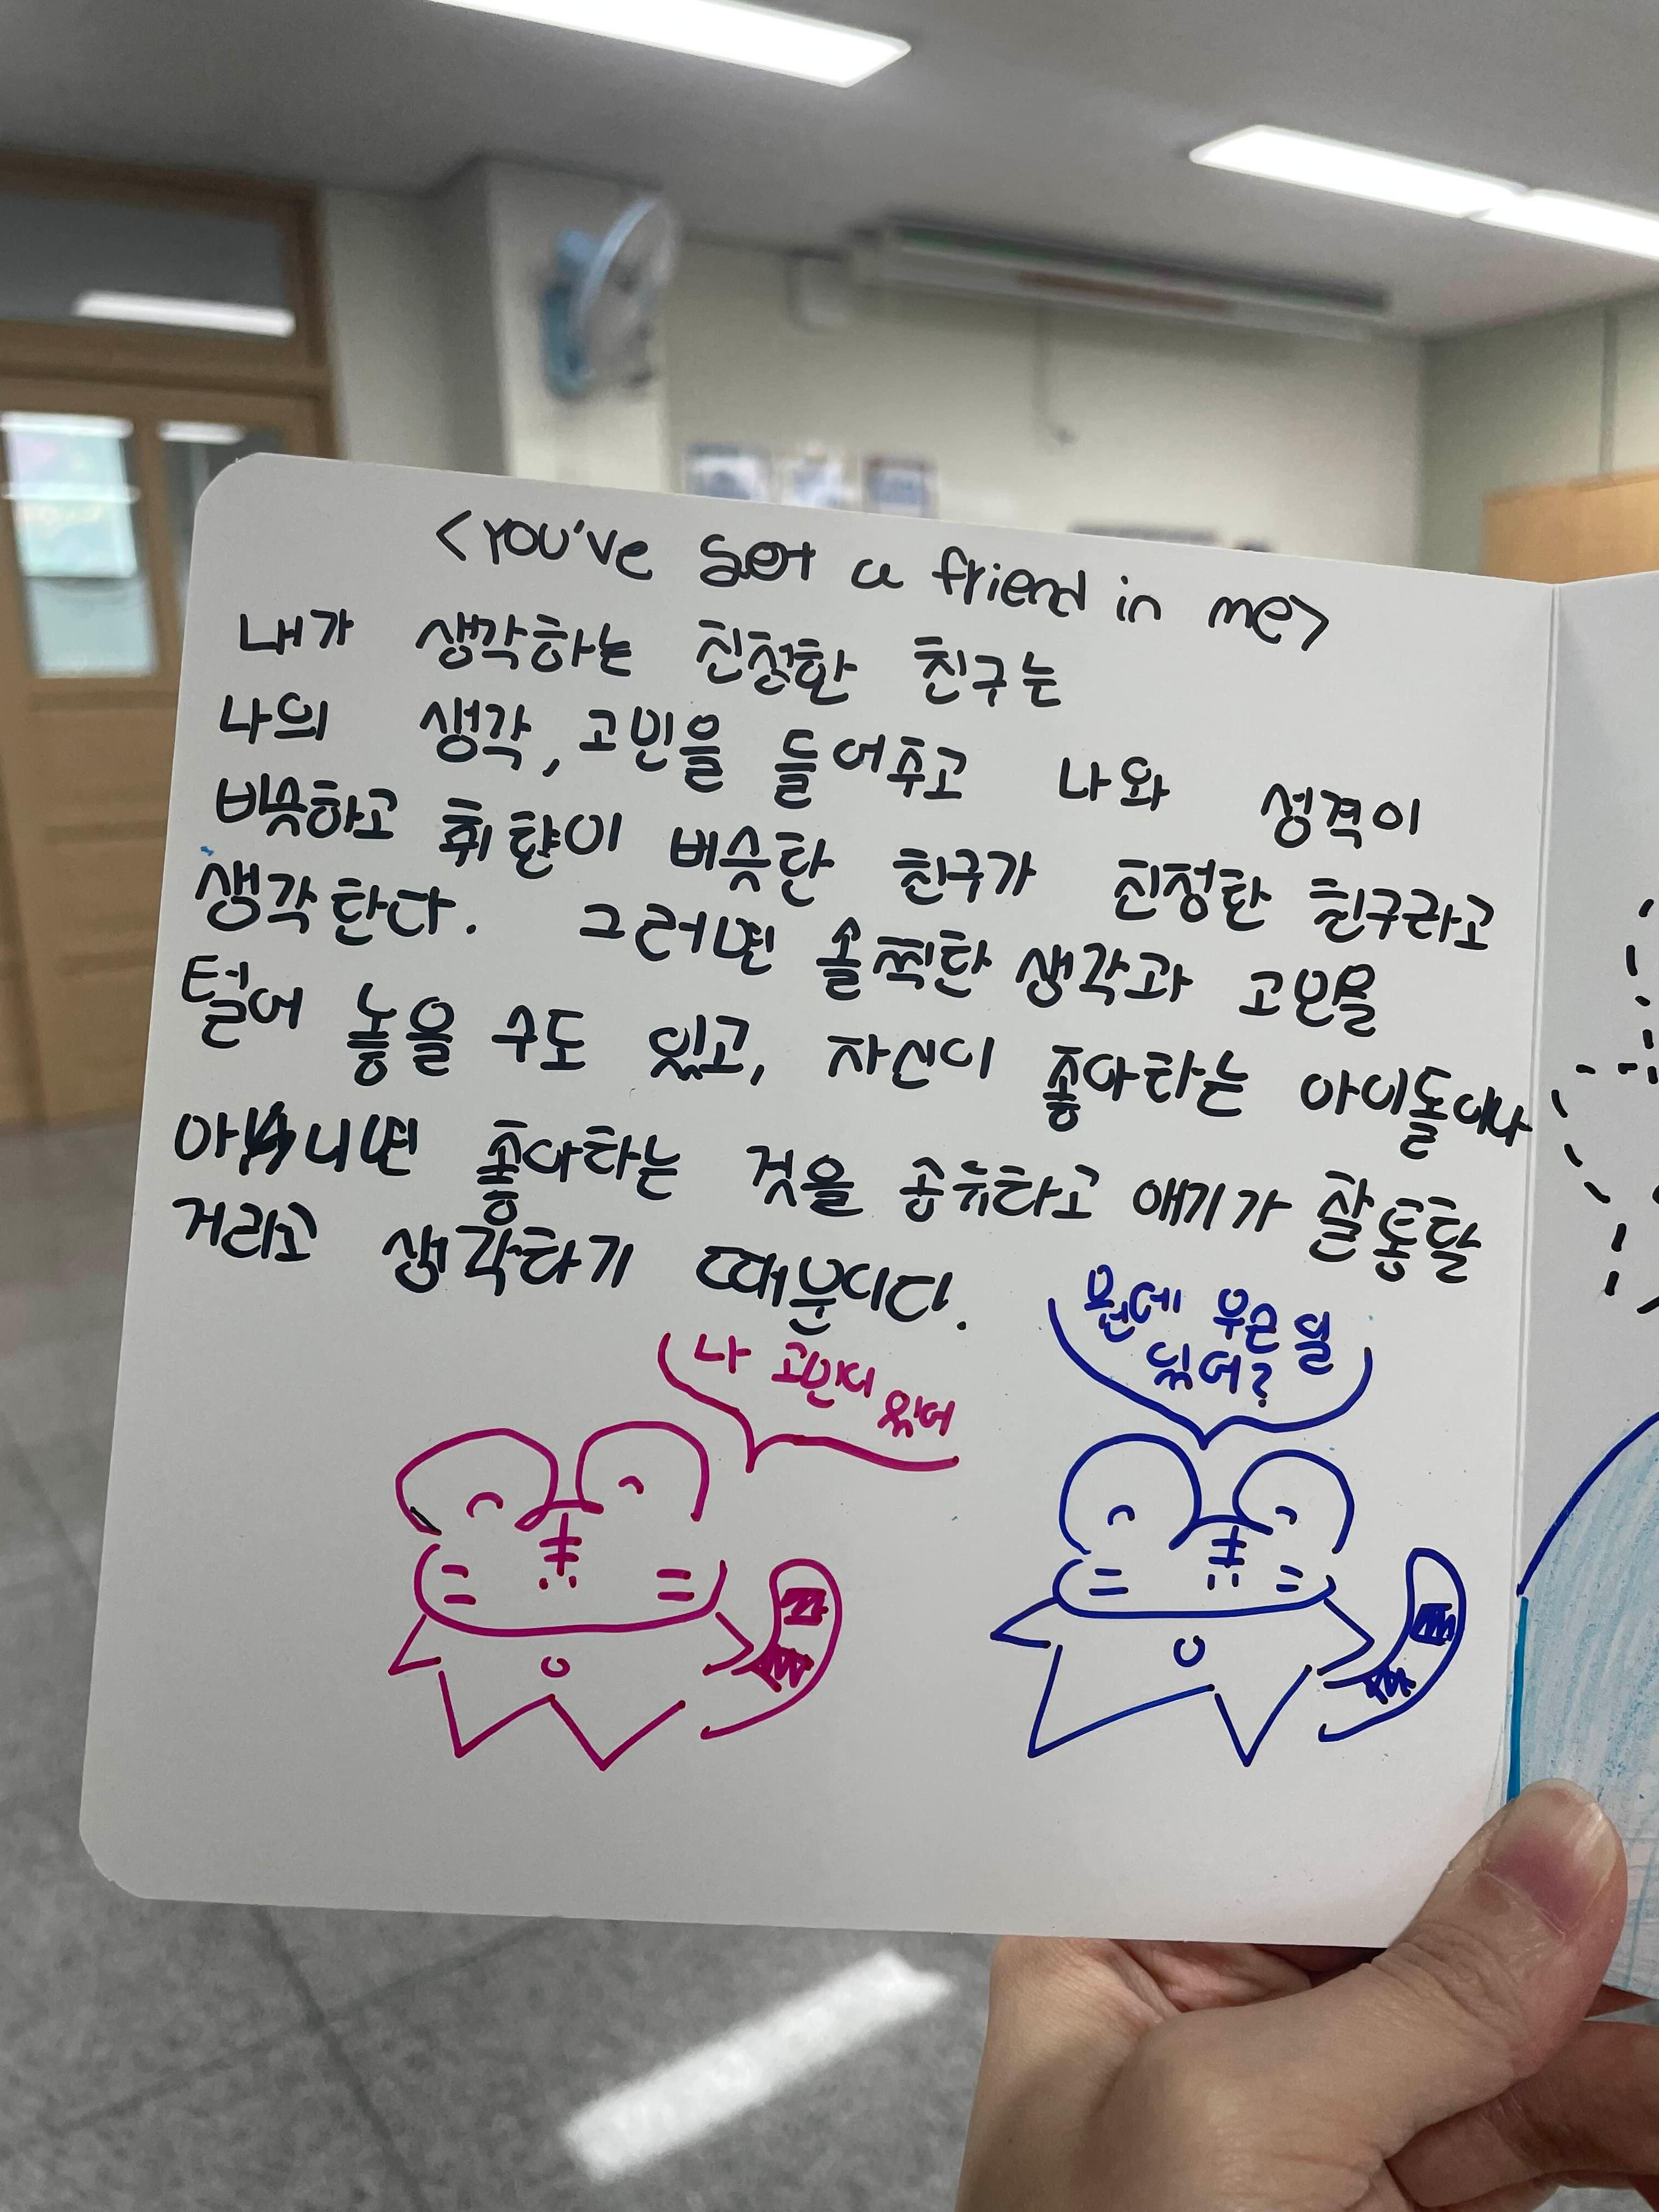 <You've got a friend in me>
내가 생각하는 진정한 친구는
나의 생각, 고민을 들어주고 나와 성격이
비슷하고 취향이 비슷한 친구가 진정한 친구라고
생각한다. 그러면 솔찍한 생각과 고민을
털어 놓을 수도 있고, 자신이 좋아하는 아이돌이나
아니면 좋아하는 것을 공유하고 얘기가 잘 통할
거라고 생각하기 때문이다.
나 고민이
있어
뭔데 무슨 일
있어?